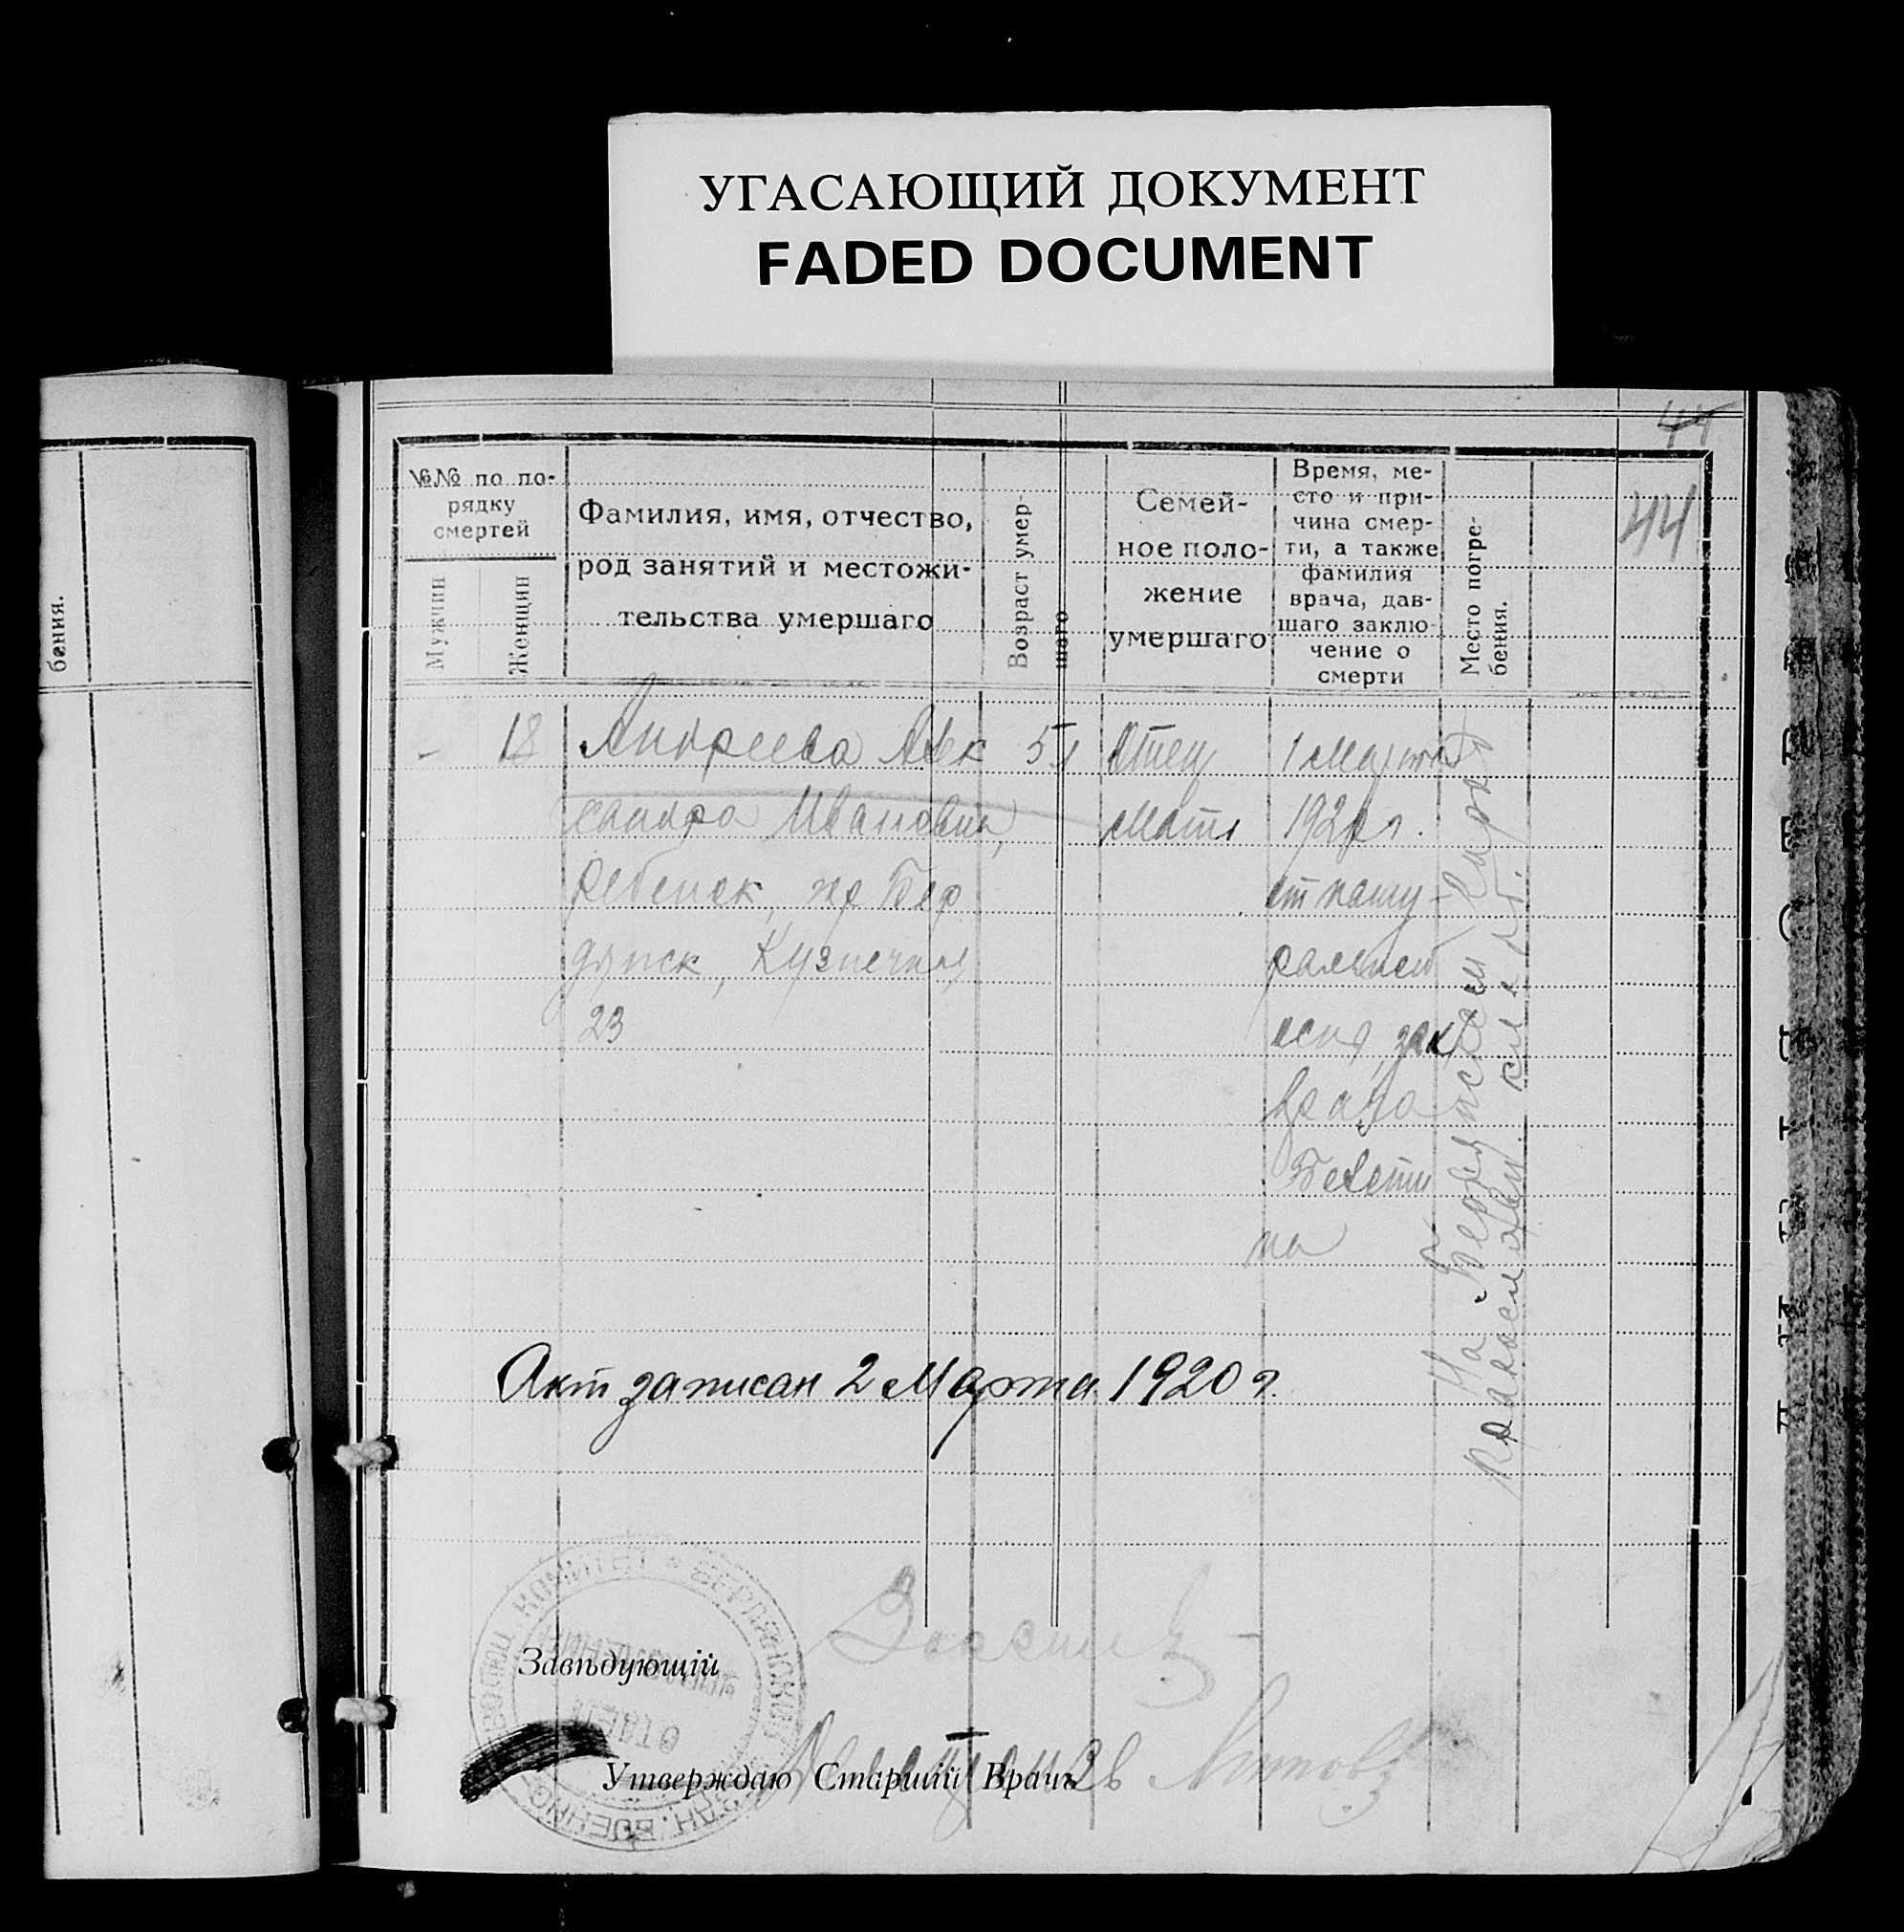 УГАСАЮЩИЙ ДОКУМЕНТ
FADED DOCUMENT
44
44
бения.
№№ по по-
рядку
смертей
Мужчин
Женщин
Фамилия, имя, отчество,
род занятий и местожи-
тельства умершаго
Возраст умер-
шаго
Семей-
ное поло-
жение
умершаго
Время, ме-
сто и при-
чина смер-
ти, а также
фамилия
врача, дав-
шаго заклю-
чение о
смерти
Место погре-
бения.
- 18
Андреева Алек
сандра Ивановна,
ребенок, гр Бер
дянск, Кузнечная
23
5 л
Отец
Мать
1 Марта
1920 г.
от нату-
ральной
оспы, зак
врача
На Бердянском
православн.
Акт записан 2 Марта 1920 г.
Завѣдующій
Утверждаю Старшій Врачъ
КОМИТЕТ * БЕРДЯНСКИЙ
ОТДЕЛ